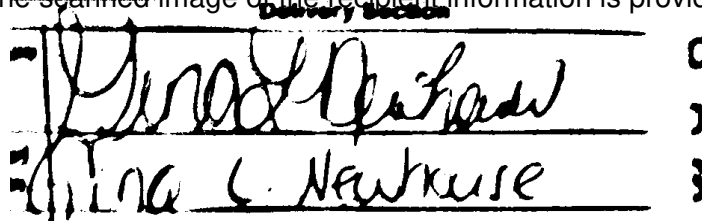 he scanned image of the recipient information is provid
Delivery Section
Gina L
Gina L. Newkruse